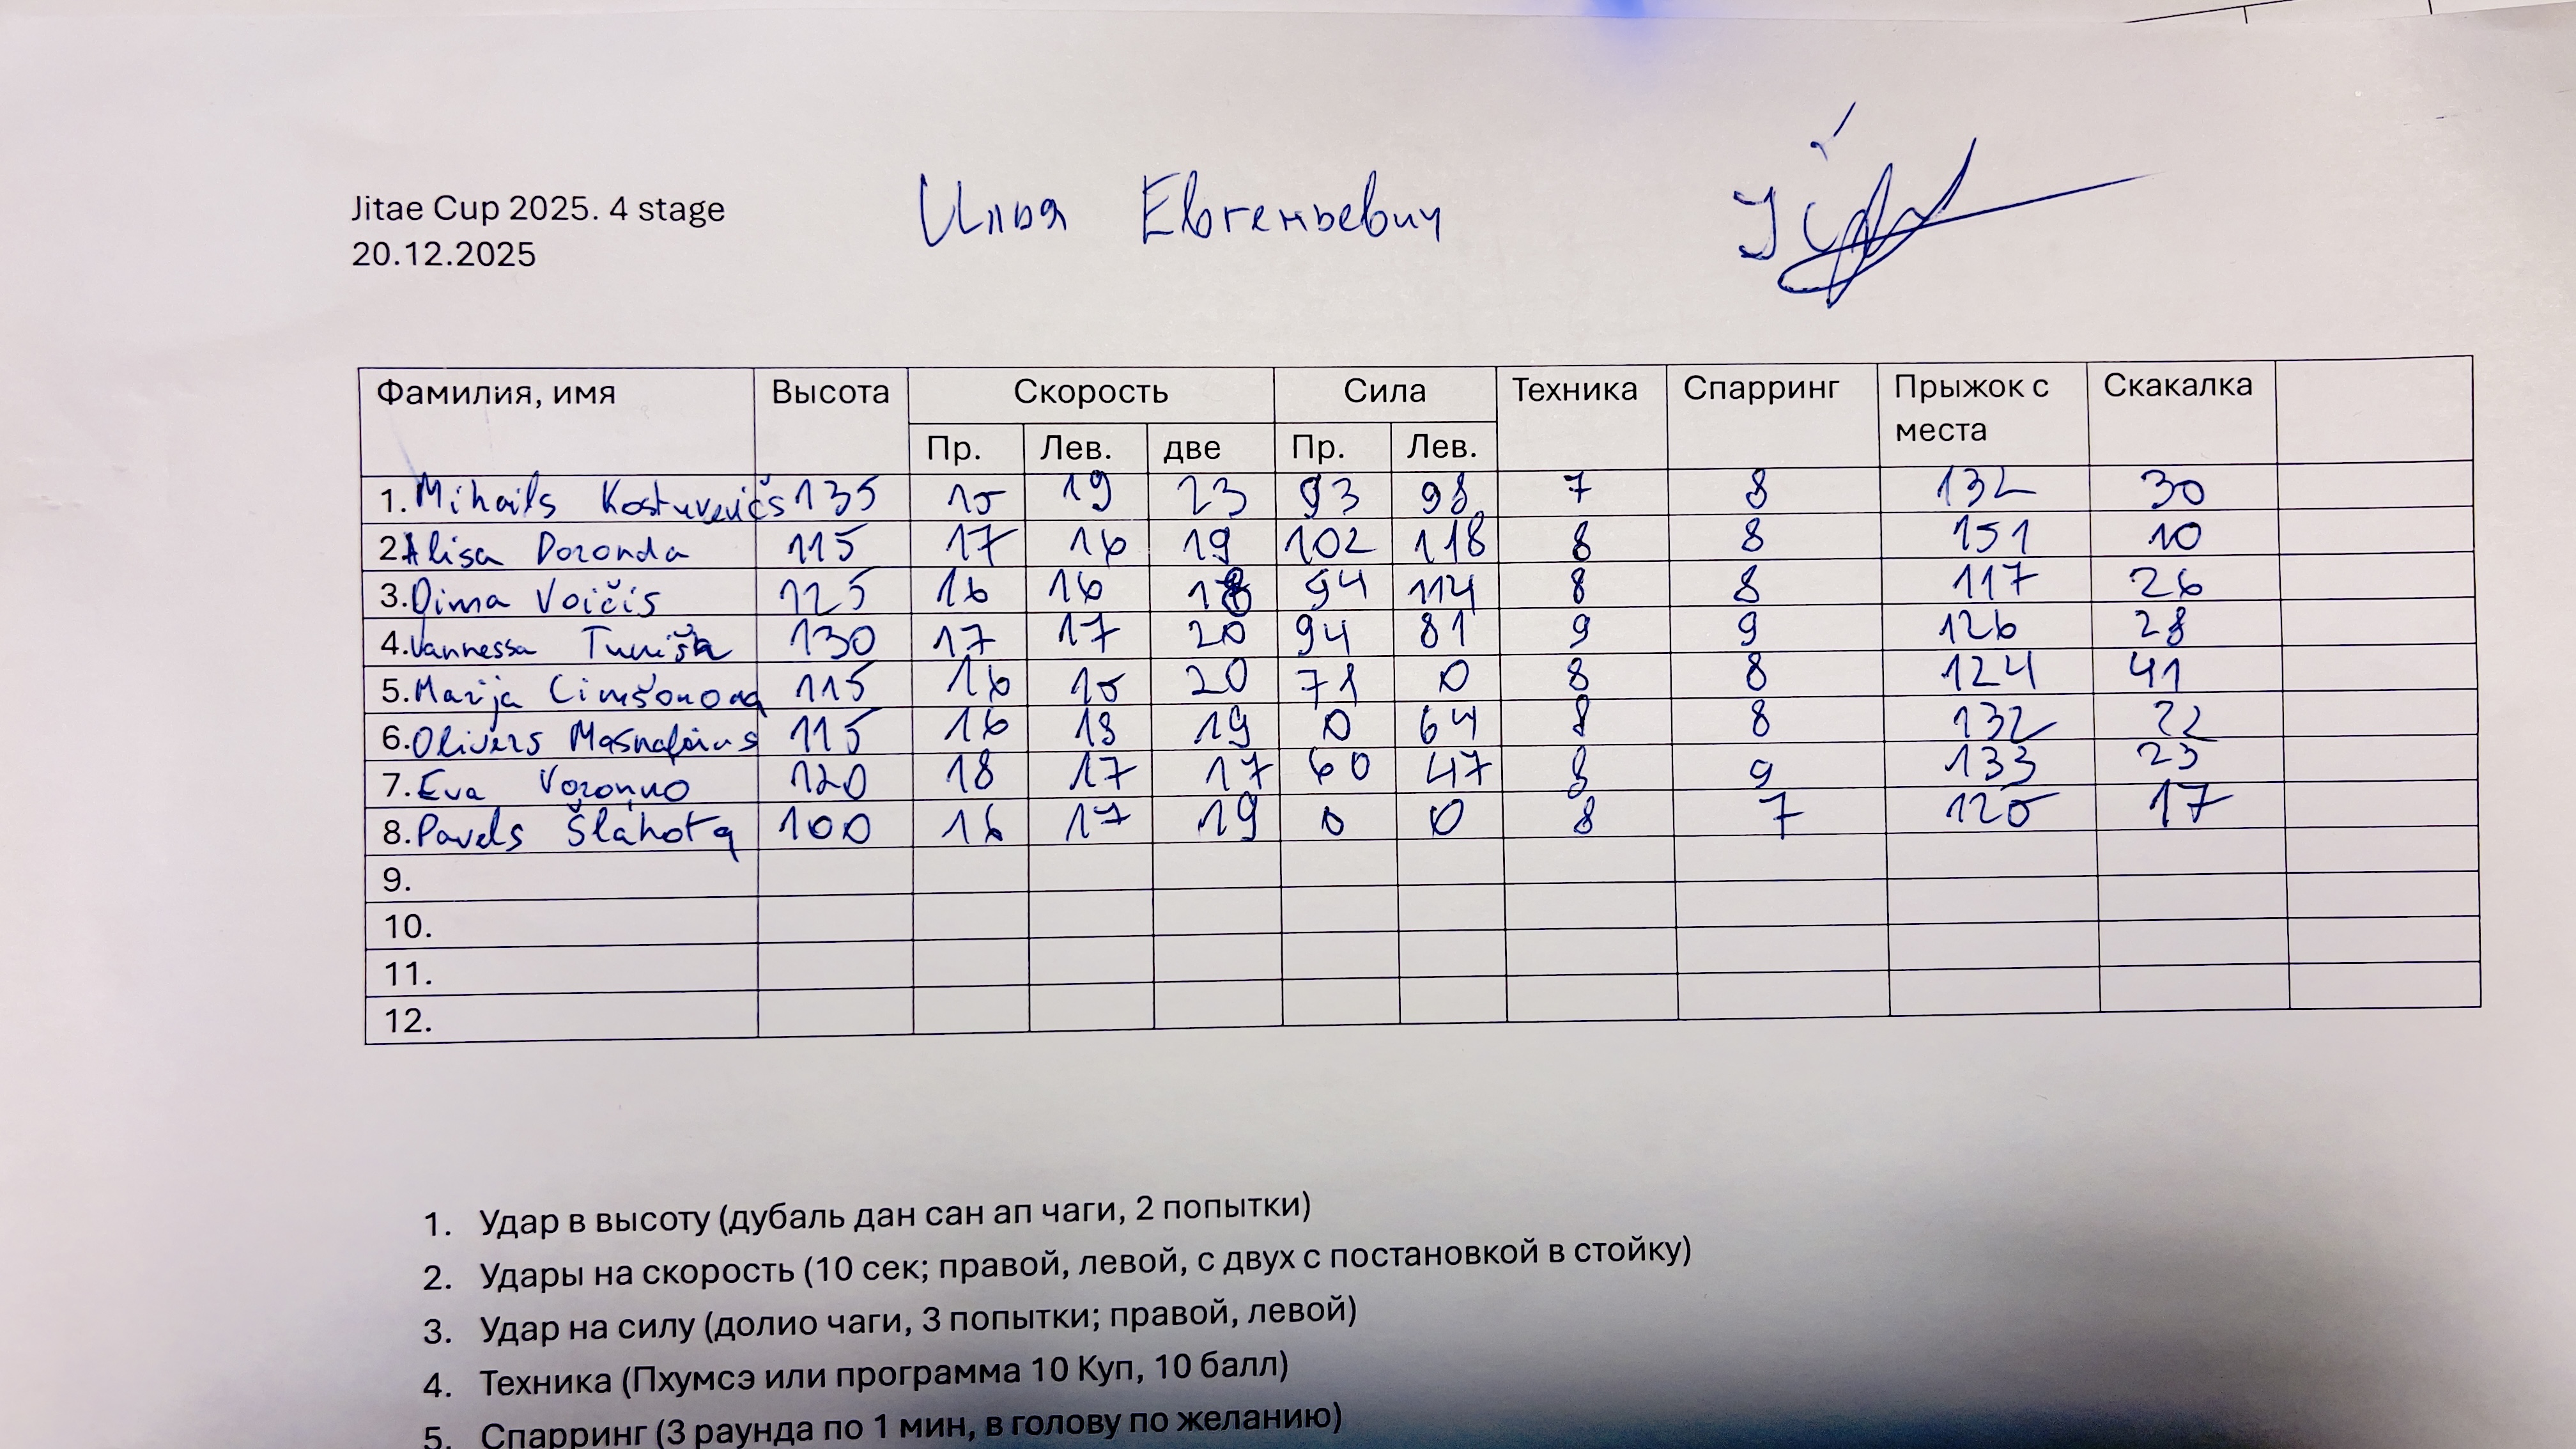 Jitae Cup 2025. 4 stage
20.12.2025
Илья Евгеньевич
Фамилия, имя Высота Скорость Сила Техника Спарринг Прыжок с места Скакалка
Пр. Лев. две Пр. Лев.
1. Mihails 135 15 19 23 93 98 7 8 132 30
2 Alisa Doronda 115 17 16 19 102 118 8 8 151 10
3. Dima Voičis 125 16 16 18 94 114 8 8 117 26
4. Vannessa 130 17 17 20 94 81 9 9 126 28
5. Marija 115 16 15 20 71 0 8 8 124 41
6. Olivers 115 16 18 19 0 64 8 8 132 22
7. Eva 120 18 17 17 60 47 8 9 133 23
8. Pavels Šlahota 100 16 17 19 0 0 8 7 125 17
9.
10.
11.
12.
1. Удар в высоту (дубаль дан сан ап чаги, 2 попытки)
2. Удары на скорость (10 сек; правой, левой, с двух с постановкой в стойку)
3. Удар на силу (долио чаги, 3 попытки; правой, левой)
4. Техника (Пхумсэ или программа 10 Куп, 10 балл)
5. Спарринг (3 раунда по 1 мин, в голову по желанию)